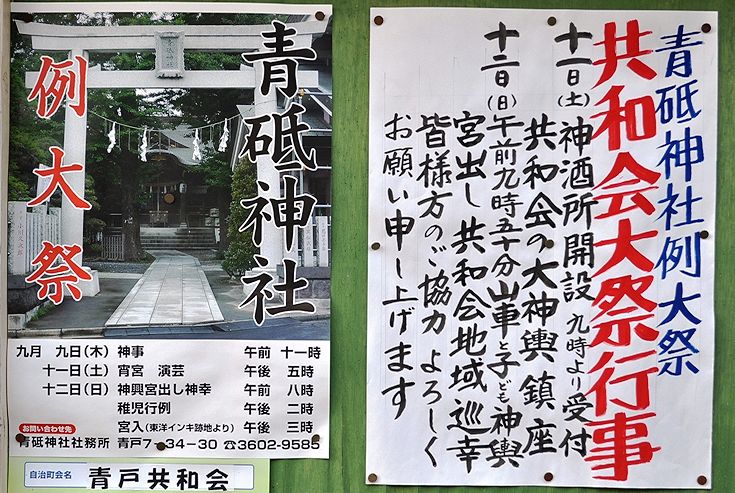 青砥神社
例大祭
九月 九日(木) 神事 午前 十一時
十一日(土) 宵宮 演芸 午後 五時
十二日(日) 神輿宮出し神幸 午前 八時
稚児行例 午後 二時
宮入(東洋インキ跡地より) 午後 三時
お問い合わせ先
青砥神社社務所 青戸7-34-30 ☎3602-9585
自治町会名 青戸共和会
青砥神社例大祭
共和会大祭行事
十一日(土) 神酒所開設 九時より受付
共和会の大神輿鎮座
十二日(日) 午前九時五十分山車と子ども神輿
宮出し 共和会地域巡幸
皆様方のご協力よろしく
お願い申し上げます